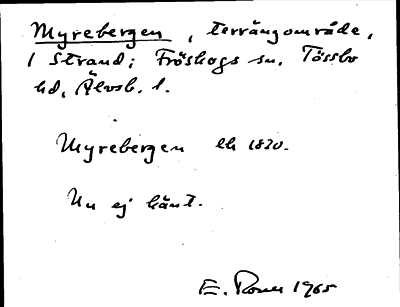 Myrebergen, terrängområde,
i Strand; Fröskogs sn, Tössbo
hd, Älvsb. l.
Myrebergen lh 1820.
Nu ej känt.
E. Rosen 1965